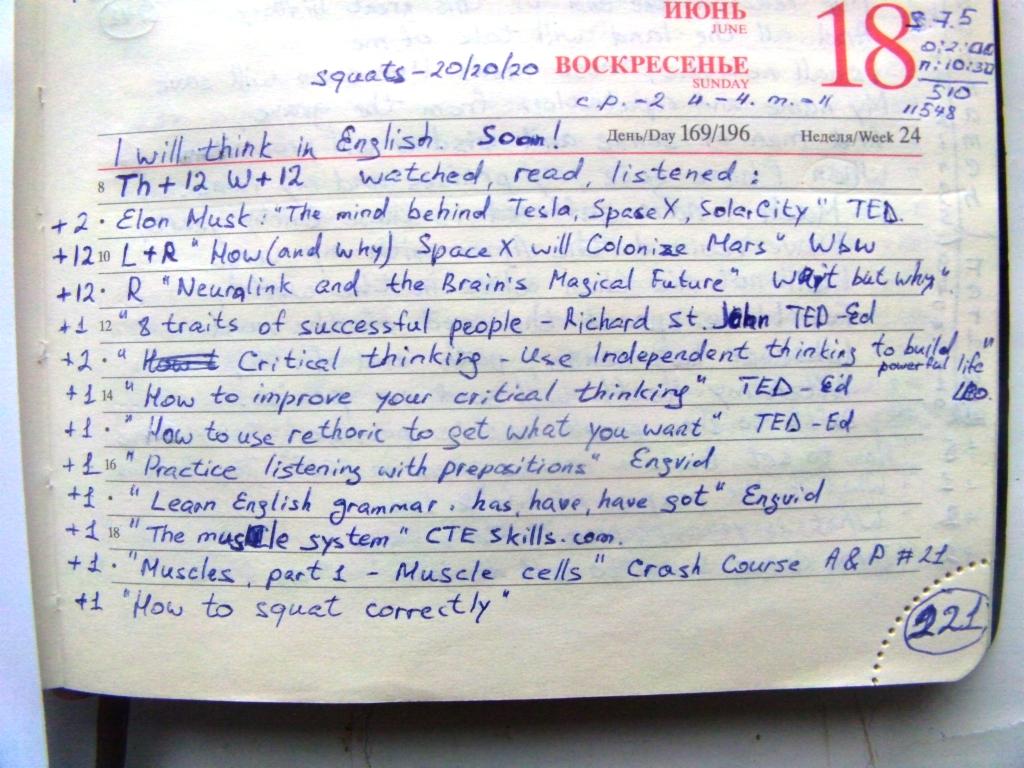 ИЮНЬ
JUNE
18
8-7.5
0:2:00
n: 10:30
510
11548
squats - 20/20/20
ВОСКРЕСЕНЬЕ
SUNDAY
с р. -2 и - 4. т. - 11
I will think in English. Soon!
День/Day 169/196
Неделя/Week 24
8 Th + 12 W + 12 watched, read, listened:
+2 · Elon Musk: "The mind behind Tesla, SpaseX, SolarCity" TED.
+12 10 L + R "How (and why) SpaceX will Colonize Mars" Wbw
+12 · R "Neuralink and the Brain's Magical Future" Wait but why".
+1 12 "8 traits of successful people - Richard St. John TED-Ed
+2 · " Critical thinking - Use Independent thinking to build powerful life" Leo.
+1 14 "How to improve your critical thinking" TED - Ed
+1 · "How to use rethoric to get what you want" TED - Ed
+1 16 "Practice listening with prepositions" Engvid
+1 · "Learn English grammar. has, have, have got" Engvid
+1 18 "The muscle system" CTE Skills.com.
+1 · "Muscles, part 1 - Muscle cells" Crash Course A & P #21
+1 "How to squat correctly"
221